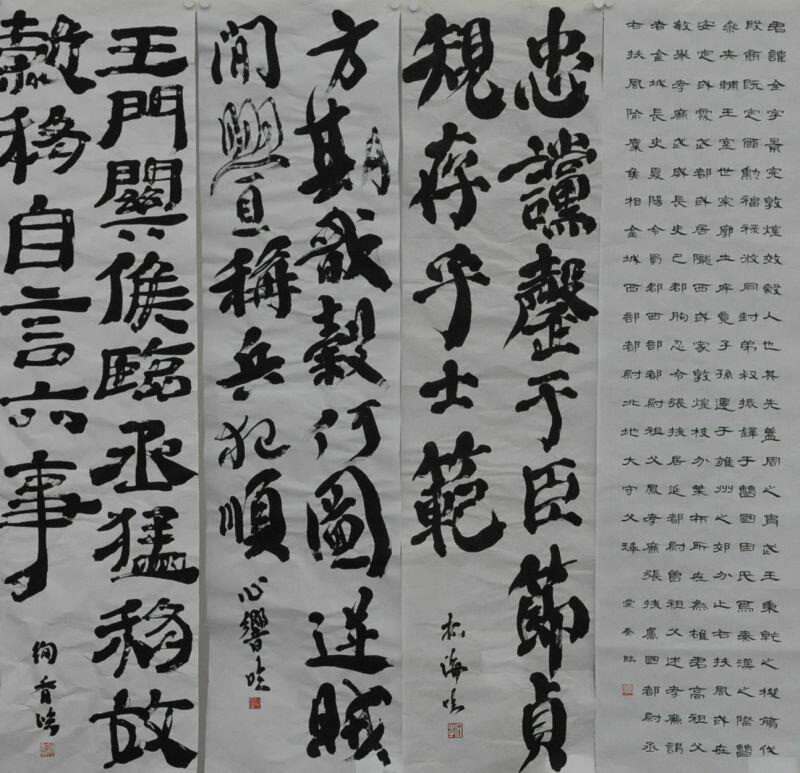 君諱全字景完敦煌效穀人也其先蓋周之胄武王秉乾之機翦伐
殷商既定爾勳福祿攸同封弟叔振鐸于曹國因氏焉秦漢之際曹
參夾輔王室世宗廓土斥竟子孫遷于雍州之郊分止右扶風或在
安定或處武都或居隴西或家敦煌枝分葉布所在為雄君高祖父
敏舉孝廉武威長史巴郡朐忍令張掖居延都尉曾祖父述孝廉謁
者金城長史夏陽令蜀郡西部都尉祖父鳳孝廉張掖屬國都尉丞
右扶風隃麋侯相金城西部都尉北地大守父琫
臨
忠讜罄于臣節貞
規存乎士範
海臨
方期戩穀何圖逆賊
閒釁稱兵犯順
心響臨
王門關侯臨丞猛移效
穀移自言六事
臨